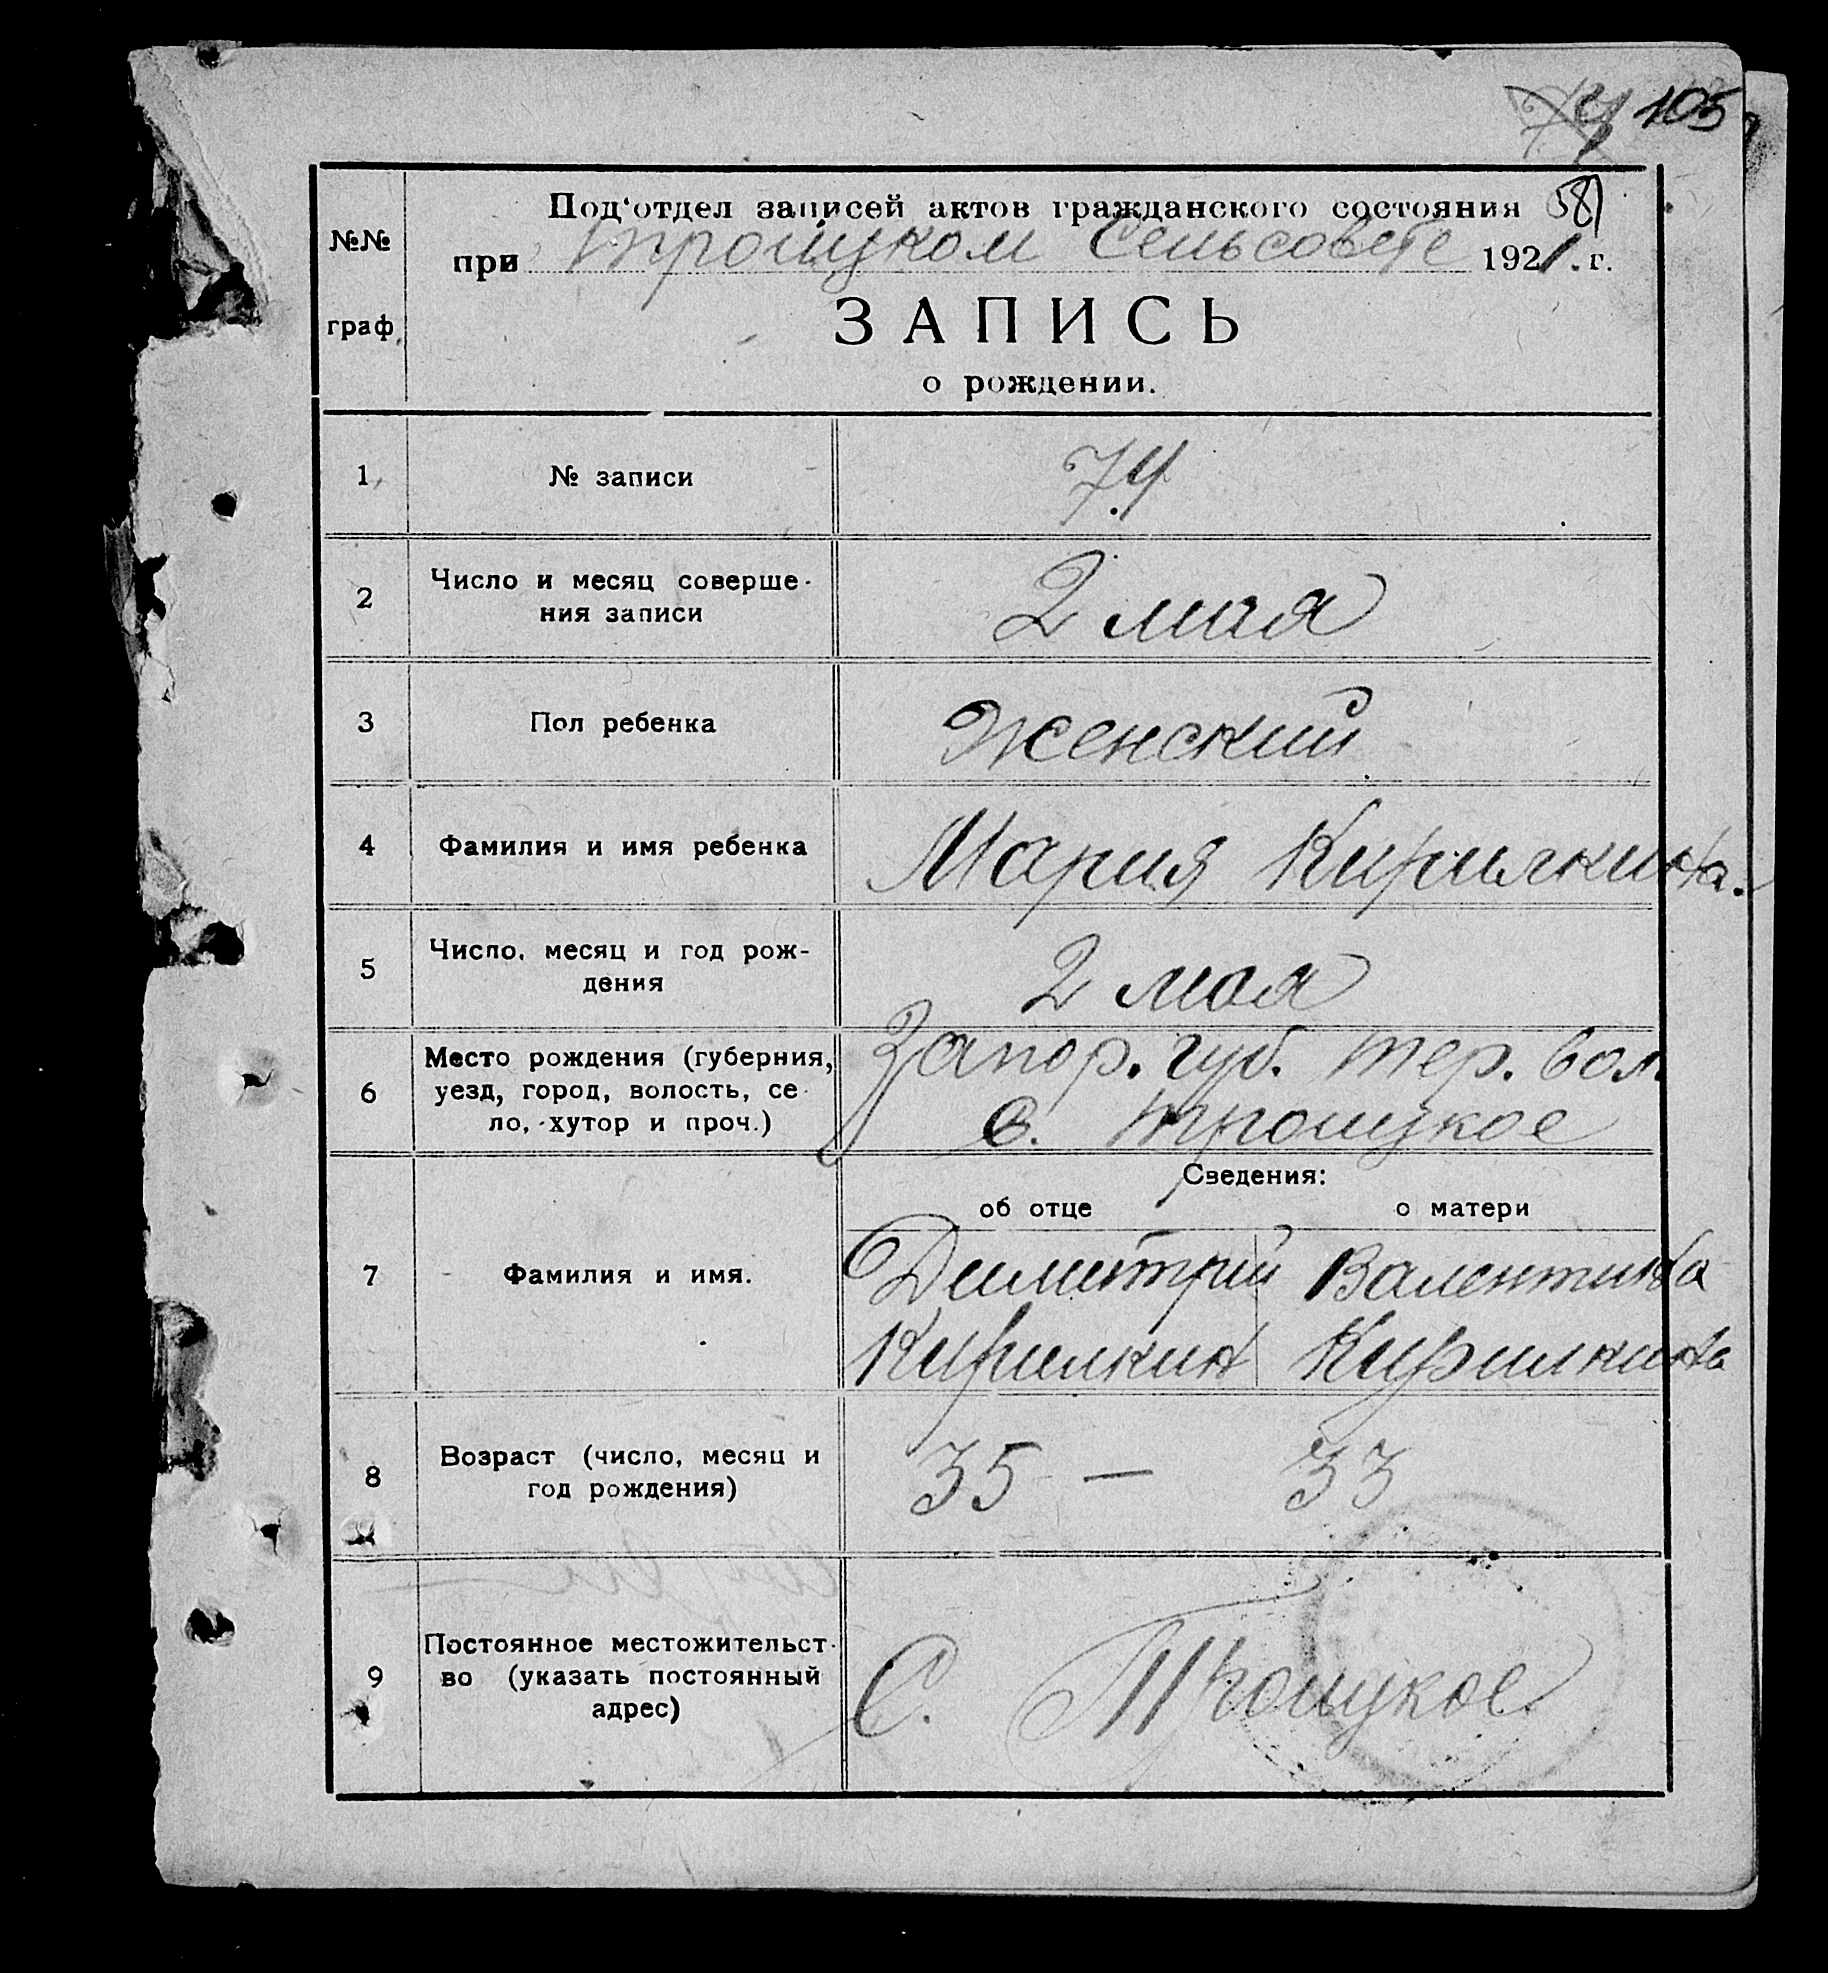 74 105
Под‘отдел записей актов гражданского состояния 58
№№
при Троицком Сельсовете 1921. г.
граф.
ЗАПИСЬ
о рождении.
1 № записи 74
2 Число и месяц соверше-
ния записи 2 мая
3 Пол ребенка Женский
4 Фамилия и имя ребенка Мария Кирилкина.
5 Число, месяц и год рож-
дения 2 мая
6 Место рождения (губерния, Запор. губ. тер. вол.
уезд, город, волость, се-
ло, хутор и проч.) С. Троицкое
Сведения:
об отце о матери
7 Фамилия и имя. Димитрий Валентина
Кирилкин Кирилкина
8 Возраст (число, месяц и
год рождения) 35 — 33
9 Постоянное местожительст-
во (указать постоянный
адрес) С. Троицкое.